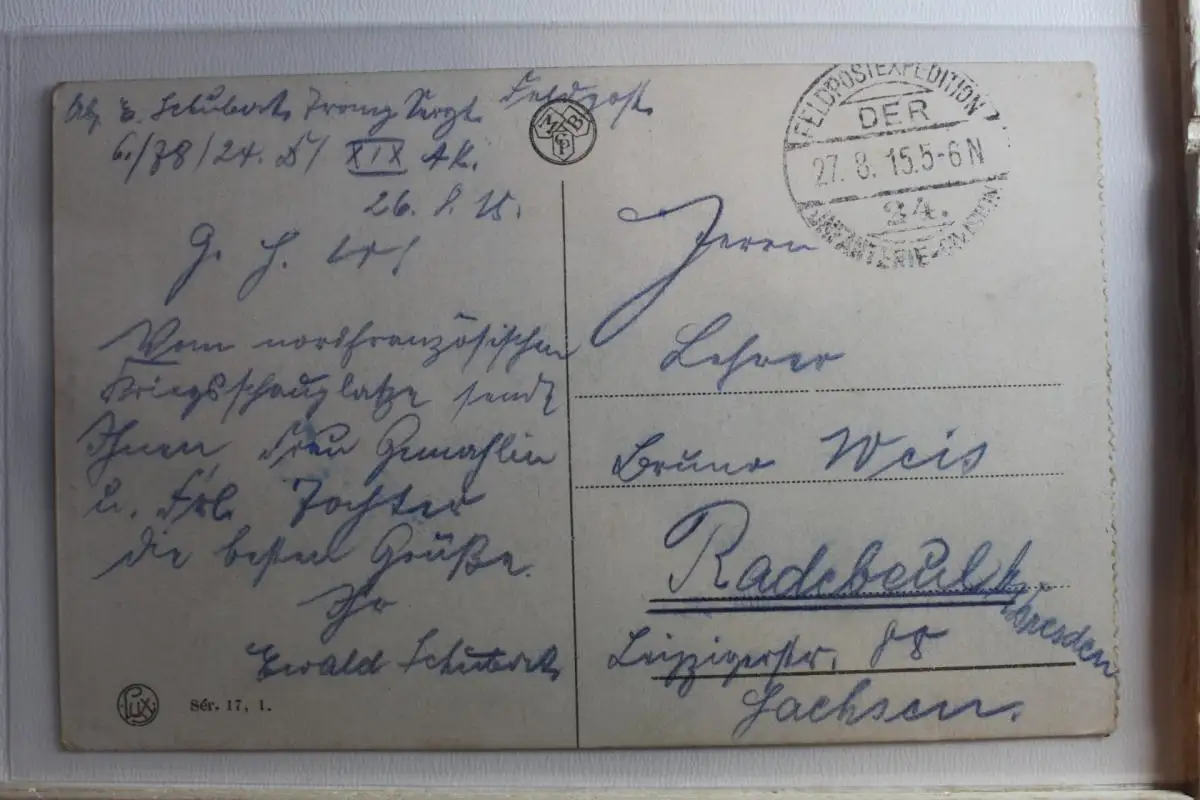 Abs. E. Schubert, Feldpost
6./78/24. D/ XIX AK.
26. 8. 15.
G. H.
Vom nordfranzösischen
Kriegsschauplatze sendet
Ihnen, Frau Gemahlin
u. Frl. Tochter
die besten Grüße.
Ihr
Ewald Schubert
Lux
Sér. 17, 1.
MBCP
FELDPOSTEXPEDITION
DER
27. 8. 15. 5-6 N
24.
INFANTERIE-DIVISION
Herrn
Lehrer
Bruno Weis
Radebeul
Dresden
Leipzigerstr.
Sachsen.